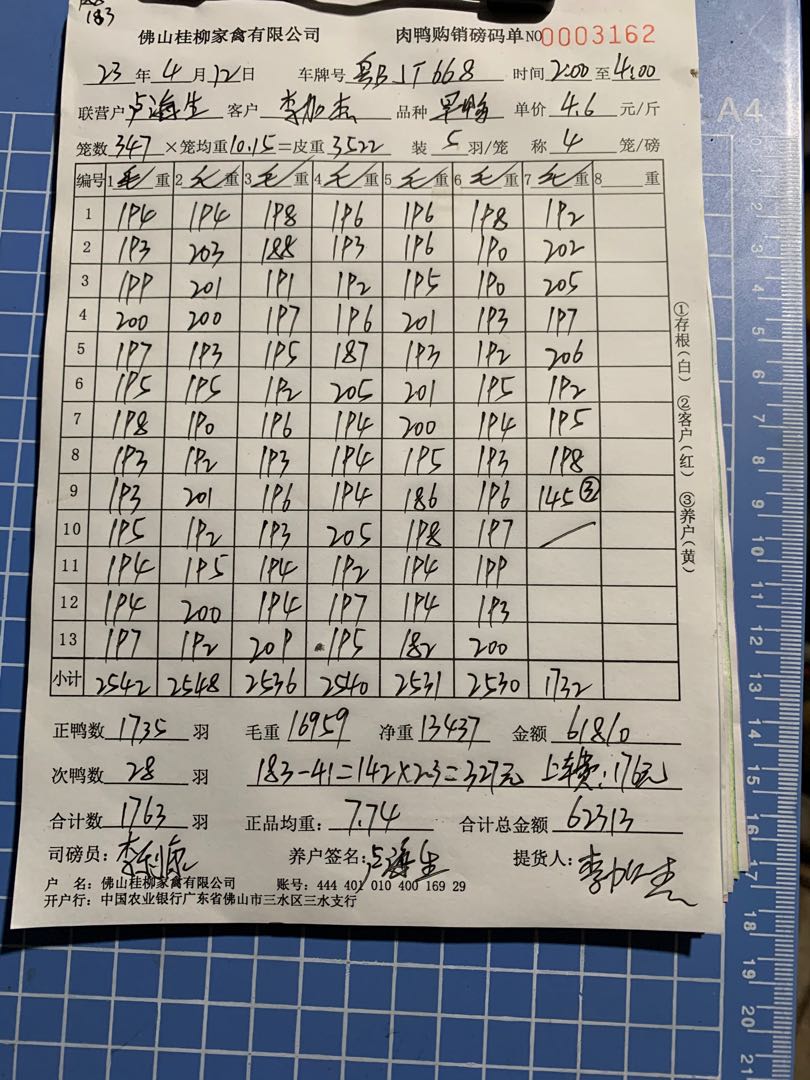 183
佛山桂柳家禽有限公司 肉鸭购销磅码单 NO 0003162
23 年 4 月 12 日 车牌号 粤B JT668 时间 2:00 至 4:00
联营户 卢海生 客户 李加杰 品种 单价 4.6 元/斤
笼数 347 ×笼均重 10.15 =皮重 3522 装 5 羽/笼 称 4 笼/磅
编号 1 毛 重 2 毛 重 3 毛 重 4 毛 重 5 毛 重 6 毛 重 7 毛 重 8 重
1 194 194 198 196 196 198 192
2 193 203 188 193 196 190 202
3 199 201 191 192 195 190 205
4 200 200 197 196 201 193 197
5 197 193 195 187 193 192 206
6 195 195 192 205 201 195 192
7 198 190 196 194 200 194 195
8 193 192 193 194 195 193 198
9 193 201 196 194 186 196 145 ③
10 195 192 193 205 198 197
11 194 195 194 192 194 199
12 194 200 194 197 194 193
13 197 192 209 195 182 200
小计 2542 2548 2536 2540 2531 2530 1732
正鸭数 1735 羽 毛重 16959 净重 13437 金额 61810
次鸭数 28 羽 183-41=142×2.3=327元 上车费:176元
合计数 1763 羽 正品均重: 7.74 合计总金额 62313
司磅员: 养户签名: 卢海生 提货人: 李加杰
户 名: 佛山桂柳家禽有限公司 账号: 444 401 010 400 169 29
开户行: 中国农业银行广东省佛山市三水区三水支行
①存根(白) ②客户(红) ③养户(黄)
A4
1
2
3
4
5
6
7
8
9
10
11
12
13
14
15
16
17
18
19
20
21